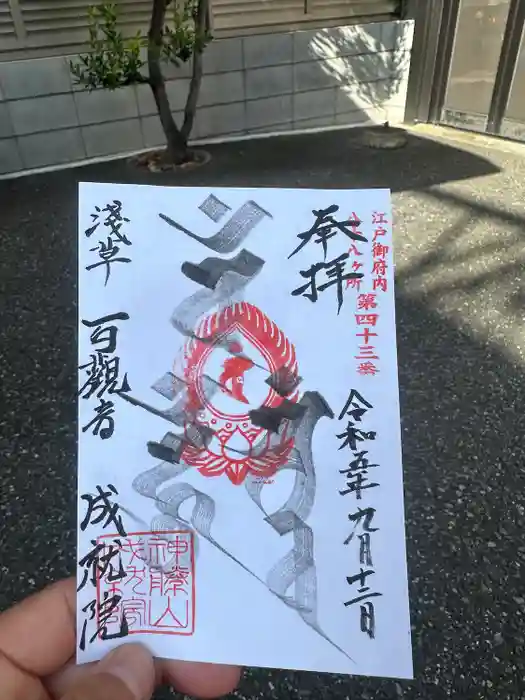 江戸御府内
八十八ヶ所 第四十三番
奉拝
令和五年九月十二日
淺草
百觀音
成就院
神勝山
成就院